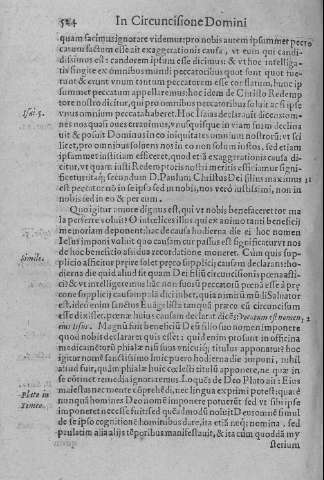 524 In Circuncisione Domini
quam facimus ignorare videmur: pro nobis autem ipsummet pecca
catum factum esse ait exaggerationis causa, vt eum qui candi-
dissimus est: candorem ipsum esse dicimus: & vt hoc intelliga-
tis fingite ex omnibus mundi peccatoribus quot sunt quot fue-
runt & erunt vnum tantum peccatorem esse conflatum, hunc ip
summet peccatum appellaremus: hoc idem de Christo Redemp
tore nostro dicitur, qui pro omnibus peccatoribus soluit ac si ipse
Isai. 5. vnus omnium peccata haberet. Hoc Isaias declarauit dicens: om-
nes nos quasi oues errauimus, vnusquisque in viam suam declina
uit & posuit Dominus in eo iniquitates omnium nostrorū: vt sci
licet, pro omnibus soluens nos in eo non solum iustos, sed etiam
ipsummet iustitiam efficeret, quod etiā exaggerationis causa di-
citur, vt quam iusti Redemptoris nostri meritis efficimur signi-
ficetur: itaq; secundum D. Paulum Christus Dei filius maximus
est peccator nō in se ipso sed in nobis, nos verò iustissimi, non in
nobis sed in eo & per eum.
Quo igitur amore dignus est, qui vt nobis benefaceret tot ma
la perferre voluit? O intellices illos qui ex animo tanti beneficij
memoriam deponent: hac de causa hodierna die ei hoc nomen
Iesus imponi voluit quo causam cur passus est significaturvt nos
de hoc beneficio assidua recordatione moneret. Cum quis sup-
Simile. plicio afficitur præire solet præco supplicij causam declarans: ho-
dierna die quid aliud sit quam Dei filiū circuncisionis pœna asti-
cit? & vt intelligeremus hāc non suorū peccatorū pœnā esse à præ
cone supplicij causam palā dici iubet, quia nimirū mūdi Saluator
est, id eī enim sanctus Euangelista tanquā præco cū circuncisum
esse dixisset, pœnæ huius causam declarat dicēs: Vocatum est nomen
eius Iesus. Magnū fuit beneficiū Dei filio suo nomen imponere
quod nobis declararet quis esset: quid enim prosunt in officina
medicamētorū phialæ nisi suus vnicuiq; titulus apponatur? hoc
igitur nomē sanctissimo huic puero hodierna die imponi, nihil
aliud fuit, quàm phialæ huic cœlesti titulū apponere, ne quæ in
Plato in se cōtinet remedia ignoraremus. Loquēs de Deo Plato ait: Eius
Timeo. maiestas nec mente cōprehēdi, nec lingua exprimi potest: quare
nunquā homines Deo nomē imponere potuerūt sed vt sibi ipse
imponeret necesse fuit: sed quēadmodū noluit Deus omnē simul
de se ipso cognitionē hominibus dare, ita etiā neq; nomina, sed
paulatim alia alijs tēporibus manifestauit, & ita cùm quoddā my
sterium